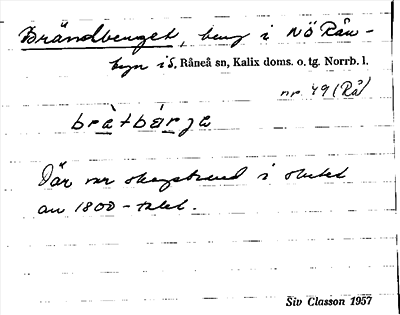 Brändberget, berg i NÖ Råne-
byn i S. Råneå sn, Kalix doms. o. tg. Norrb. l.
nr 49 (Rå)
brà+bárja
Där var skogsbrand i slutet
av 1800-talet.
Siv Classon 1957